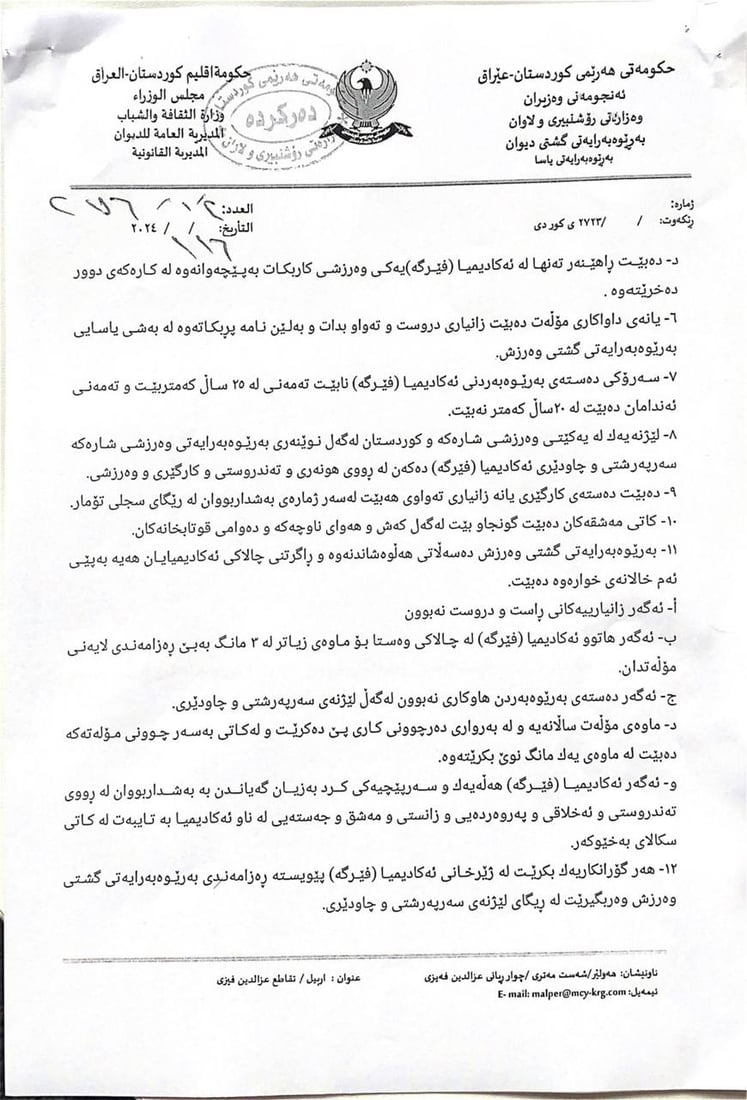 حکومەتی هەرێمی کوردستان-عێراق
ئەنجومەنی وەزیران
وەزارەتی رۆشنبیری و لاوان
بەڕێوەبەرایەتی گشتی دیوان
بەڕێوەبەرایەتی یاسا
حكومة اقليم كوردستان-العراق
مجلس الوزراء
وزارة الثقافة والشباب
المديرية العامة للديوان
المديرية القانونية
دەرکردە
ژمارە:
ڕێکەوت: / /٢٧٢٣ ی کوردی
العدد:
التاريخ: / / ٢٠٢٤
د- دەبێت ڕاهێنەر تەنها لە ئەکادیمیا (فێرگە)یەکی وەرزشی کاربکات بەپێچەوانەوە لە کارەکەی دوور
دەخرێتەوە .
٦- یانەی داواکاری مۆڵەت دەبێت زانیاری دروست و تەواو بدات و بەڵێن نامە پڕبکاتەوە لە بەشی یاسایی
بەڕێوەبەرایەتی گشتی وەرزش.
٧- سەرۆکی دەستەی بەڕێوەبەردنی ئەکادیمیا (فێرگە) نابێت تەمەنی لە ٢٥ ساڵ کەمتربێت و تەمەنی
ئەندامان دەبێت لە ٢٠ساڵ کەمتر نەبێت.
٨- لێژنەیەك لە یەکێتی وەرزشی شارەکە و کوردستان لەگەل نوێنەری بەڕێوەبەرایەتی وەرزشی شارەکە
سەرپەرشتی و چاودێری ئەکادیمیا (فێرگە) دەکەن لە ڕووی هونەری و تەندروستی و کارگێری و وەرزشی.
٩- دەبێت دەستەی کارگێری یانە زانیاری تەواوی هەبێت لەسەر ژمارەی بەشداربووان لە رێگای سجلی تۆمار.
١٠- کاتی مەشقەکان دەبێت گونجاو بێت لەگەل کەش و هەوای ناوچەکە و دەوامی قوتابخانەکان.
١١- بەڕێوەبەرایەتی گشتی وەرزش دەسەڵاتی هەڵوەشاندنەوە و ڕاگرتنی چالاکی ئەکادیمیایان هەیە بەپێی
ئەم خالانەی خوارەوە دەبێت.
أ- ئەگەر زانیارییەکانی ڕاست و دروست نەبوون
ب- ئەگەر هاتوو ئەکادیمیا (فێرگە) لە چالاکی وەستا بۆ ماوەی زیاتر لە ٣ مانگ بەبێ ڕەزامەندی لایەنی
مۆڵەتدان.
ج- ئەگەر دەستەی بەڕێوەبەردن هاوکاری نەبوون لەگەڵ لێژنەی سەرپەرشتی و چاودێری.
د- ماوەی مۆڵەت ساڵانەیە و لە بەرواری دەرچوونی کاری پێ دەکرێت و لەکاتی بەسەر چوونی مۆلەتەکە
دەبێت لە ماوەی یەك مانگ نوێ بکرێتەوە.
و- ئەگەر ئەکادیمیا (فێرگە) هەڵەیەك و سەرپێچیەکی کرد بەزیان گەیاندن بە بەشداربووان لە ڕووی
تەندروستی و ئەخلاقی و پەروەردەیی و زانستی و مەشق و جەستەیی لە ناو ئەکادیمیا بە تایبەت لە کاتی
سکالای بەخێوکەر.
١٢- هەر گۆرانکاریەك بکرێت لە ژێرخانی ئەکادیمیا (فێرگە) پێویستە ڕەزامەندی بەڕێوەبەرایەتی گشتی
وەرزش وەربگیرێت لە ڕیگای لێژنەی سەرپەرشتی و چاودێری.
ناونیشان: هەولێر/شەست مەتری /چوار ڕیانی عزالدین فەیزی
عنوان : اربيل / تقاطع عزالدين فيزي
ئیمەیل: E- mail: malper@mcy-krg.com